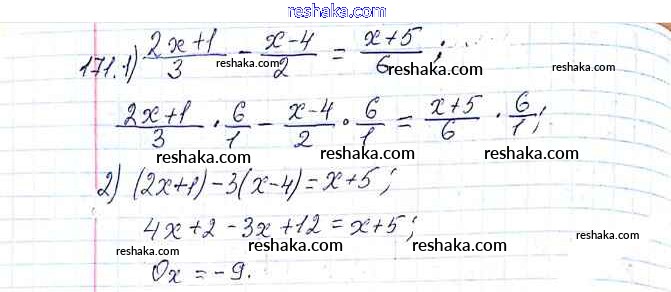 reshaka.com
171. 1) (2x+1)/3 - (x-4)/2 = (x+5)/6;
reshaka.com reshaka.com
(2x+1)/3 · 6/1 - (x-4)/2 · 6/1 = (x+5)/6 · 6/1;
reshaka.com reshaka.com reshaka.com
2) (2x+1) - 3(x-4) = x+5;
reshaka.com reshaka.com
4x+2-3x+12 = x+5;
reshaka.com reshaka.com reshaka.com
0x = -9.